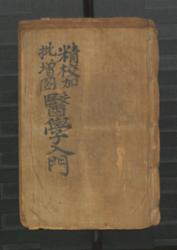 精校加
批增圖
醫學入門